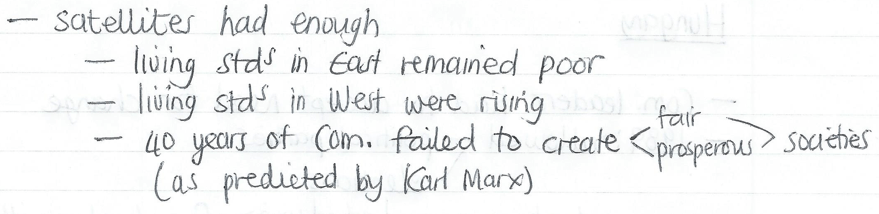 — satellites had enough
— living stds in East remained poor
— living stds in West were rising
— 40 years of Com. failed to create < fair prosperous > societies
(as predicted by Karl Marx)
Hungary